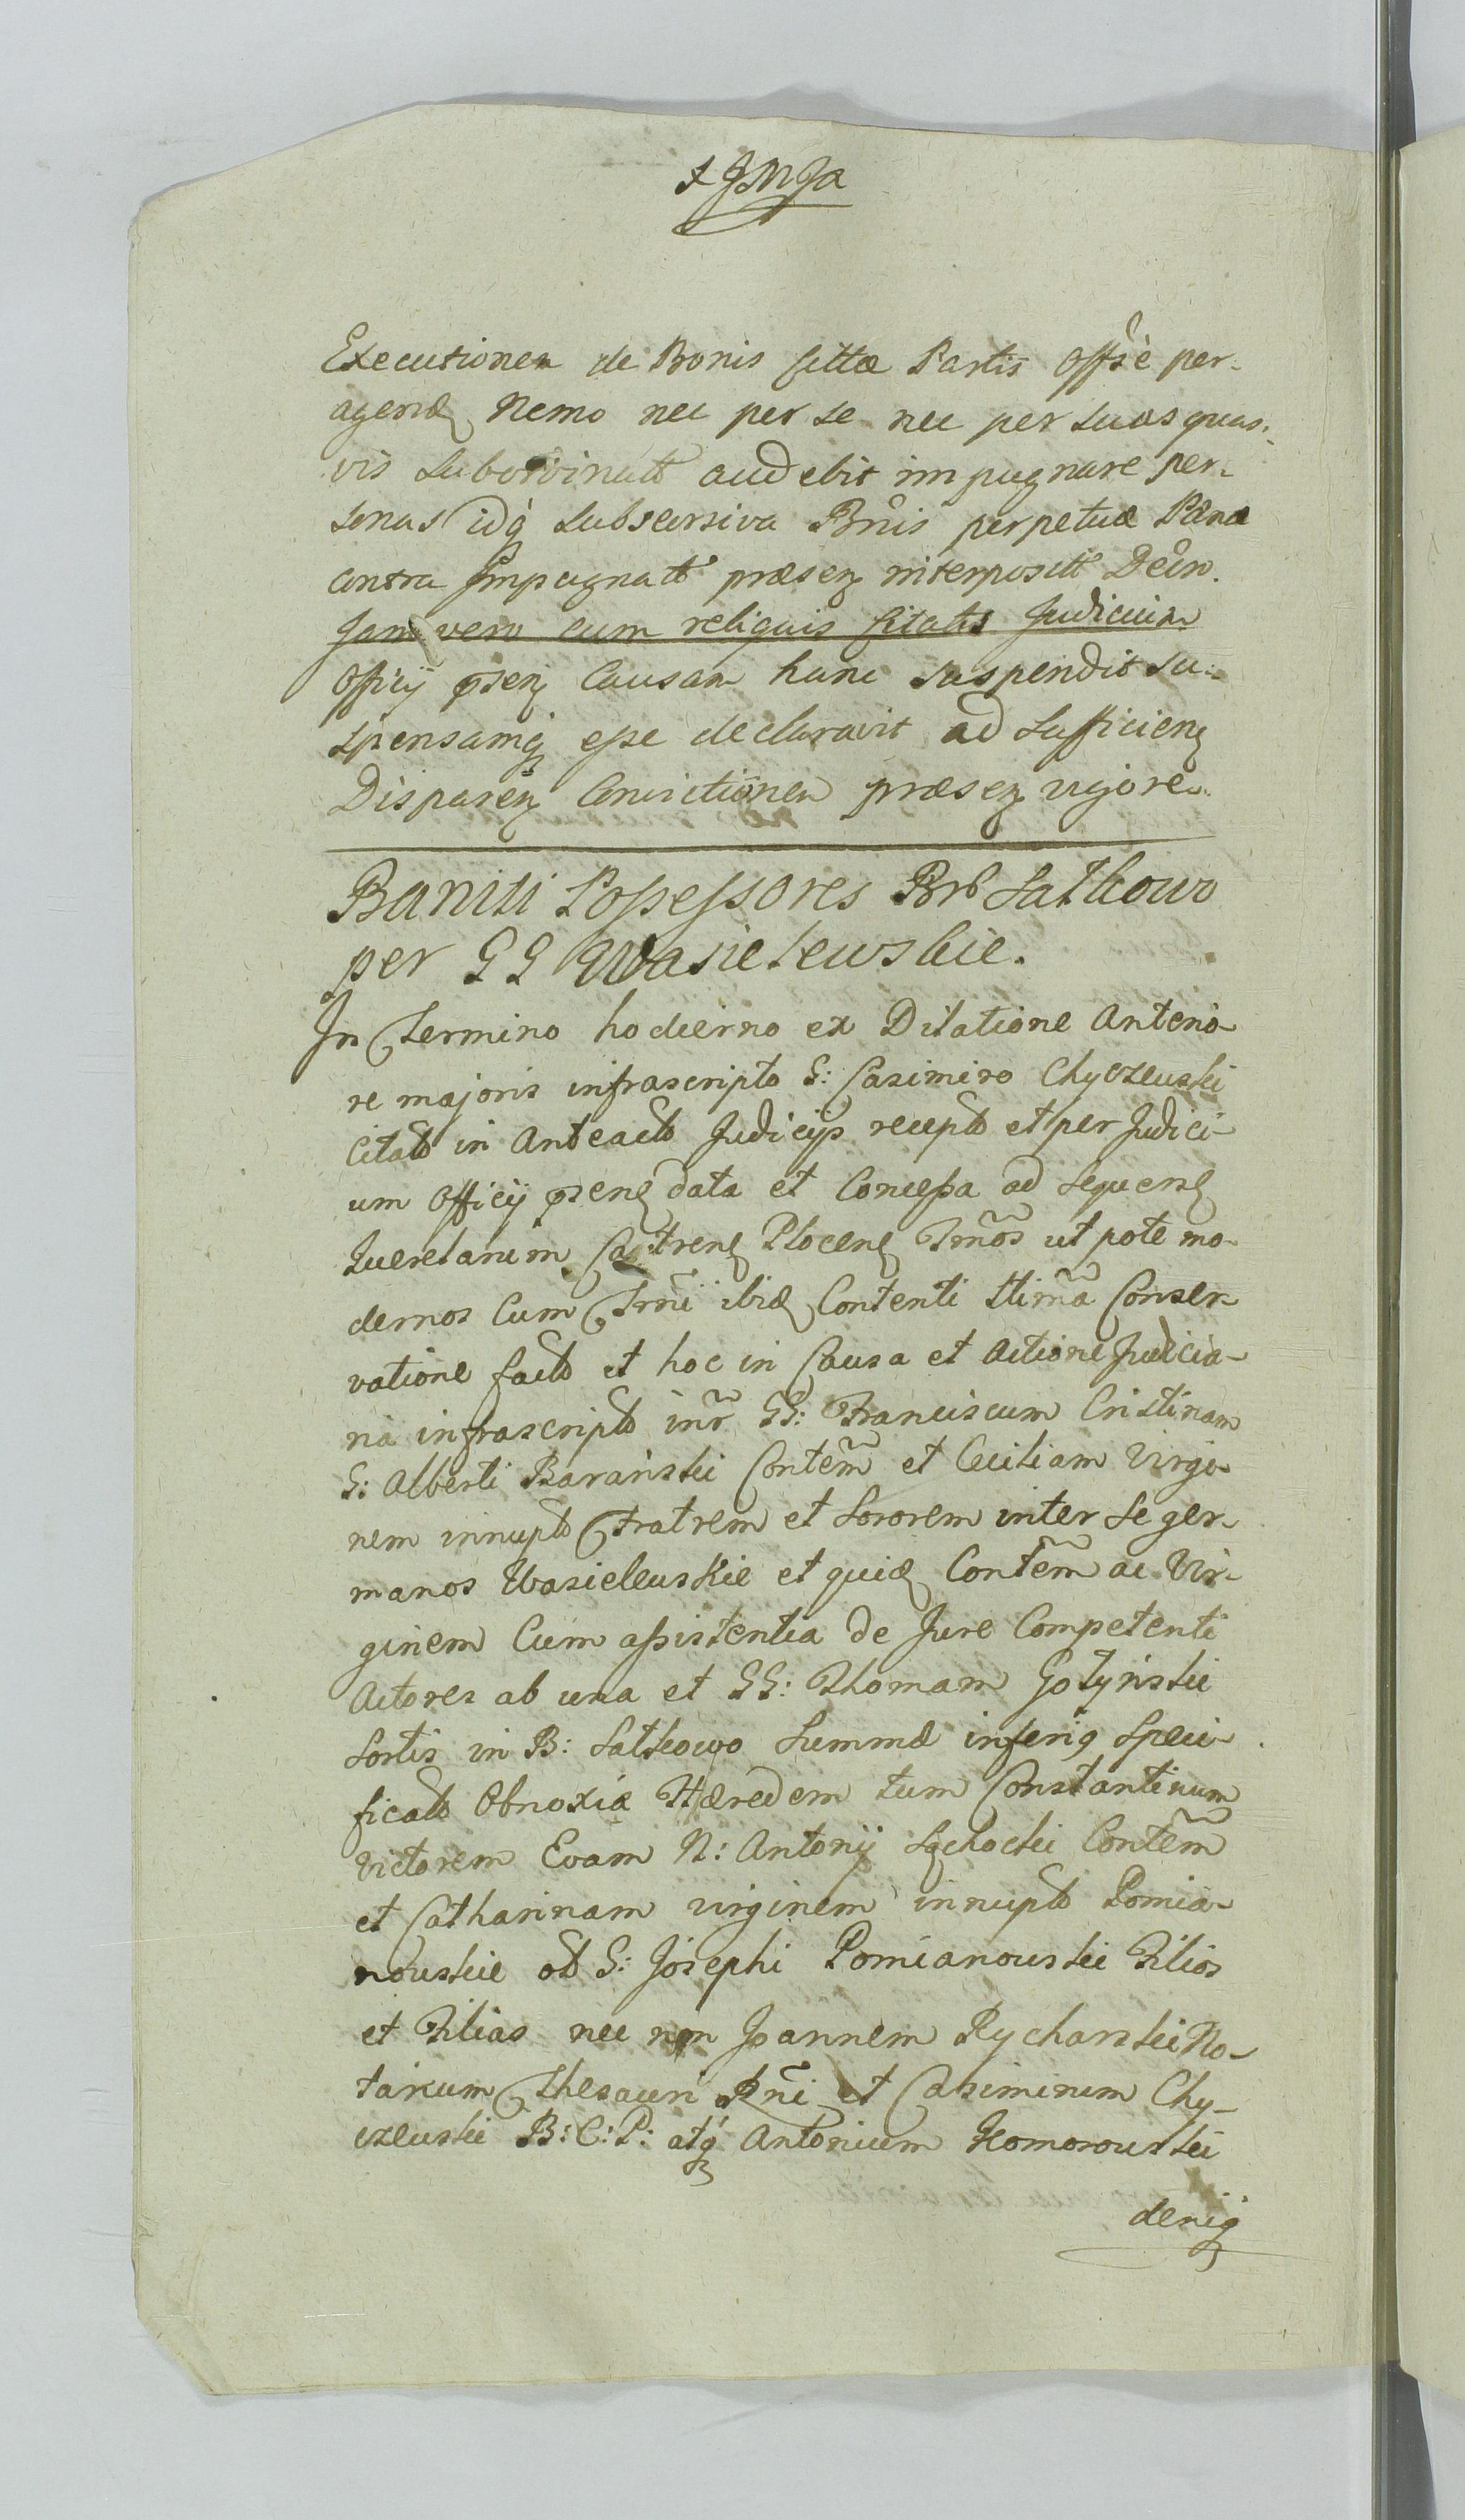 Executionem de Bonis Cittæ Partis Offsè per-
agend Nemo nec per se nec per suas quas-
vis Subordinatt audebit impugnare per-
sonas idq́ subscersiva Bnis perpetuæ Pænæ
contra Impugnatt præsen interpositt Decro.
Jam vero cum reliquis Citatis Judicium
Officij psen Causam hanc suspendit su-
spensamq́ esse declaravit ad Sufficien
Disparen Convictionem præsen vigore.
Baniti Possessores Br Satkowo
per GG Wasielewskie.
In Termino hodierno ex Dilatione Anterio-
re majoris infrascripto G: Casimiro Chyczewski
Citato in Anteacto Judicijs recepto et per Judici-
um Officij psen data et Concessa ad sequens
Querelarum Castren Plocen Tmños ut pote mo-
dernos Cum Trmi ibid Contenti ttimã Conser-
vatione facto et hoc in Causa et Actione Judicia-
ria infrascripto intr GG: Franciscum Cristinam
G: Alberti Barański Contem̃ et Ceciliam Virgi-
nem innupto Fratrem et Sororem inter se ger-
manos Wasielewskie et quid Contem̃ ac Vir-
ginem Cum assistentia de Jure Competenti
Actores ab una et GG: Thomam Gotyński
Sortis in B: Satkowo Summæ inferig Speci-
ficato Obnoxiæ Hæredem tum Constantinum
Victorem Evam N: Antonij Sąchocki Contem̃
et Catharinam virginem innupto Pomia-
nowskie ol G: Josephi Pomianowski Filios
et Filias nec non Joannem Rycharski No-
tarium Thesauri Rñi et Casimirum Chy-
czewski B: C: P: atq́ Antonium Komorowski
deniq́